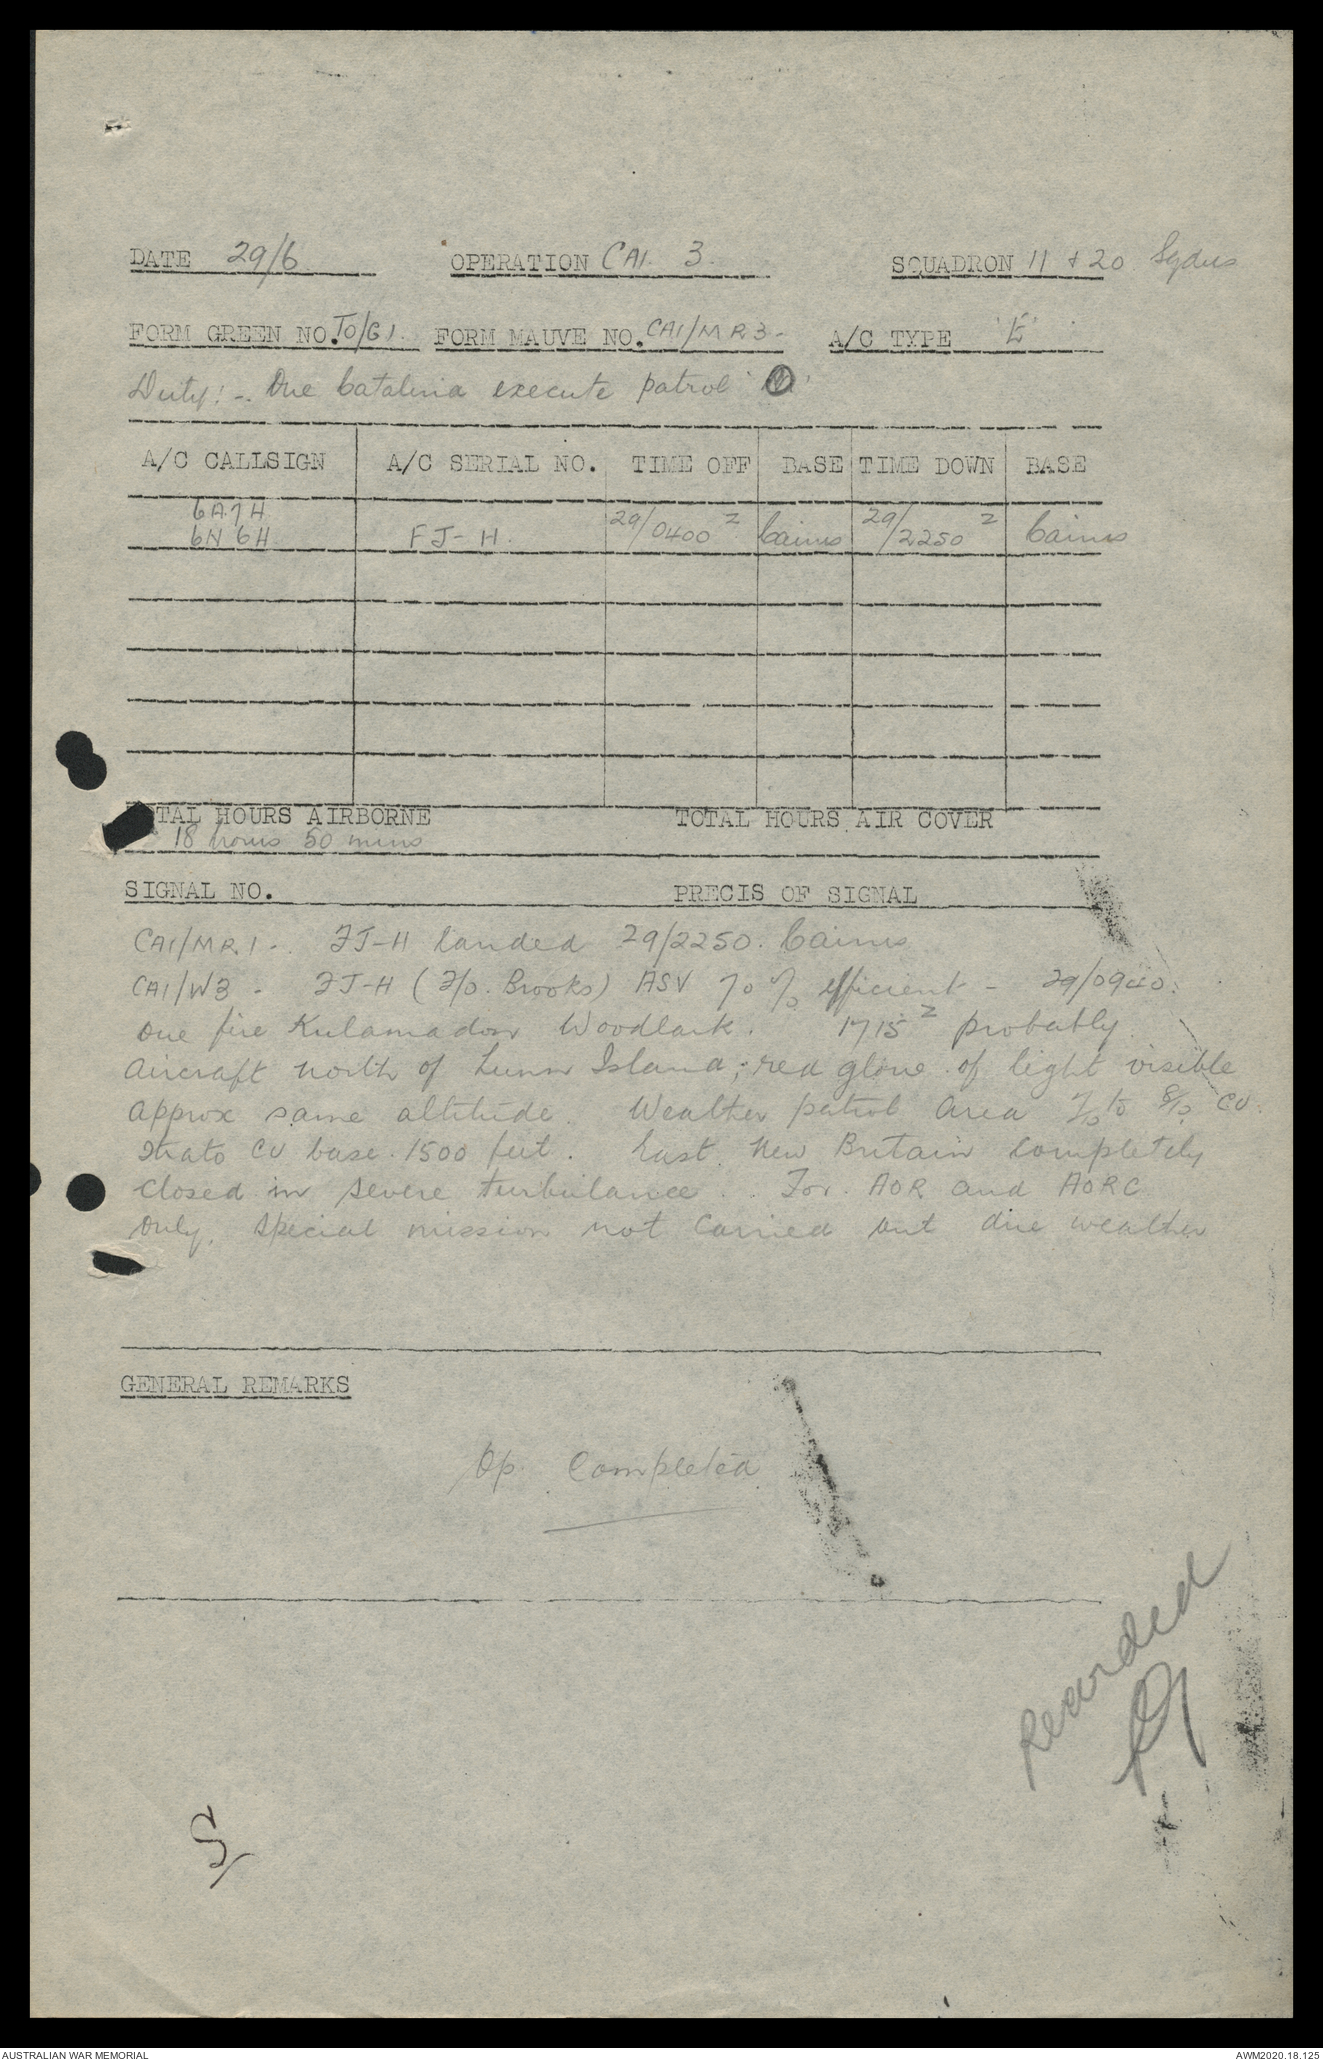 DATE 29/6 OPERATION CAI. 3. SQUADRON 11 & 20 Sqdns
FORM GREEN NO. TO/G1. FORM MAUVE NO. CAI/MR3- A/C TYPE 'E'
Duty:- One Catalina execute patrol
A/C CALLSIGN A/C SERIAL NO. TIME OFF BASE TIME DOWN BASE
6A7H
6N6H FJ-H. 29/0400 Z Cairns 29/2250 Z Cairns
TOTAL HOURS AIRBORNE TOTAL HOURS AIR COVER
18 hours 50 mins
SIGNAL NO. PRECIS OF SIGNAL
CAI/MR1-. FJ-H landed 29/2250. Cairns
CAI/W3 - FJ-H (F/O. Brooks) ASV 70% efficient - 29/0940.
One fire Kulamadau Woodlark. 1715 Z probably
aircraft north of Island; red glow of light visible
approx same altitude. Weather patrol area 7/10 to 8/10 CU
Strato CU base 1500 feet. East New Britain completely
closed in severe turbulance. For AOR and AORC
only. Special mission not carried out due weather
GENERAL REMARKS
Op. Completed
Recorded
AUSTRALIAN WAR MEMORIAL AWM2020.18.125